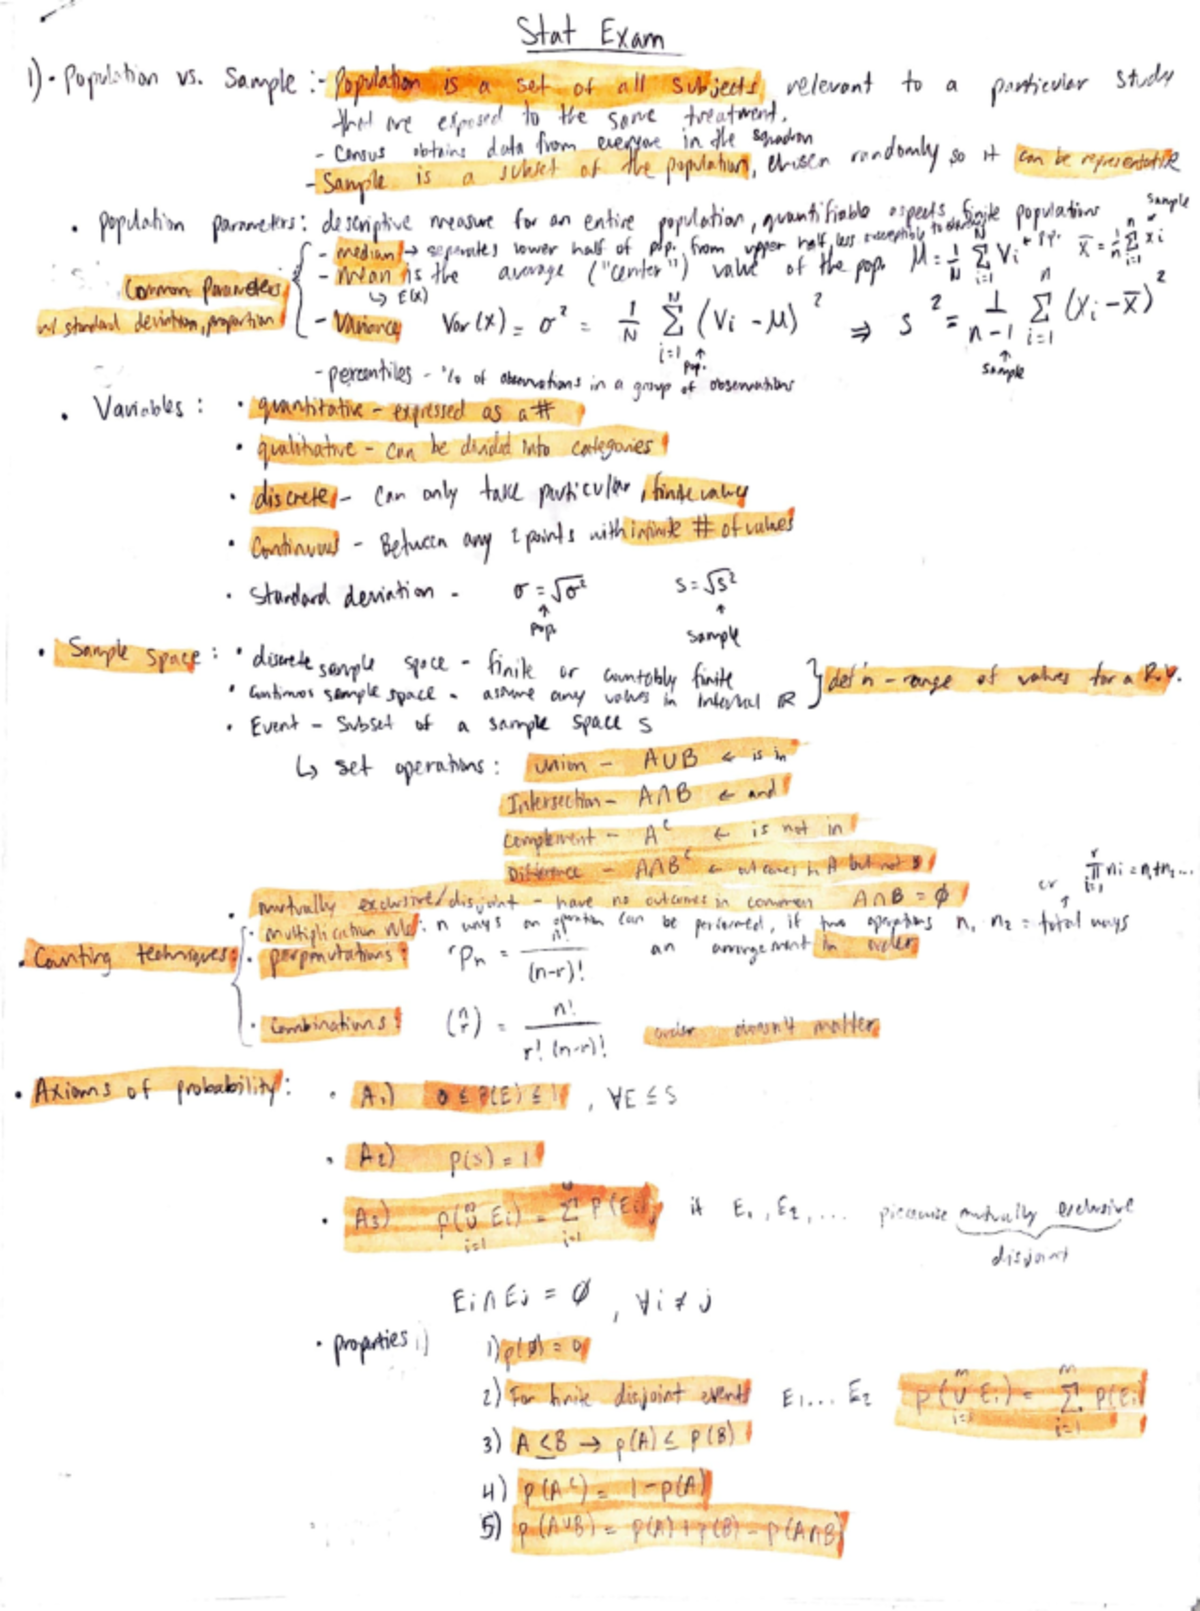 Stat Exam
1) • Population vs. Sample :- Population is a set of all subjects relevant to a particular study
that are exposed to the same treatment.
- Census obtains data from everyone in the squadron
- Sample is a subset of the population, chosen randomly so it can be representative
• population parameters: descriptive measure for an entire population, quantifiable aspects, finite populations
Common Parameters
w/ standard deviation, proportion
- median → separates lower half of pop. from upper half, less susceptible to
- mean is the average ("center") value of the pop μ = 1/N Σ_{i=1}^{N} Vi ← pp. x̄ = 1/n Σ_{i=1}^{n} xi sample
↳ E(x)
- Variance Var(x) = σ² = 1/N Σ_{i=1}^{N} (Vi - μ)² ⇒ s² = 1/n-1 Σ_{i=1}^{n} (Xi - x̄)²
↑ pop. ↑ sample
- percentiles - % of observations in a group of observations
• Variables : • quantitative - expressed as a #
• qualitative - can be divided into categories
• discrete - can only take particular, finite values
• Continuous - Between any 2 points with infinite # of values
• Standard deviation - σ = √σ² s = √s²
↑ pop. ↑ sample
• Sample space : • discrete sample space - finite or countably finite
• continuos sample space - assume any values in interval R } def'n - range of values for a R.V.
• Event - Subset of a sample space S
↳ set operations : union - A∪B ← is in
Intersection - A∩B ← and
complement - Aᶜ ← is not in
Difference - A∩Bᶜ ← outcomes in A but not B
• mutually exclusive/disjoint - have no outcomes in common A∩B = ∅
or Π_{i=1}^{r} ni = n1+n2...
• Counting techniques: • multiplication rule : n ways an operation can be performed, if two operations n1 · n2 = total ways
• perpmutations : rPn = n!/(n-r)! an arrangement in order
• Combinations : (n r) = n!/r!(n-r)! order doesn't matter
• Axioms of probability : • A1) 0 ≤ P(E) ≤ 1 , ∀E ≤ S
• A2) p(s) = 1
• A3) p(∪_{i=1}^{∞} Ei) = Σ_{i=1}^{∞} P(Ei), if E1, E2, ... piecewise mutually exclusive
disjoint
Ei∩Ej = ∅ , ∀i ≠ j
• properties : 1) p(∅) = 0
2) For finite disjoint events E1... E2 p(∪_{i=1}^{m} Ei) = Σ_{i=1}^{m} P(Ei)
3) A ≤ B → p(A) ≤ p(B)
4) p(Aᶜ) = 1 - p(A)
5) p(A∪B) = p(A) + p(B) - p(A∩B)